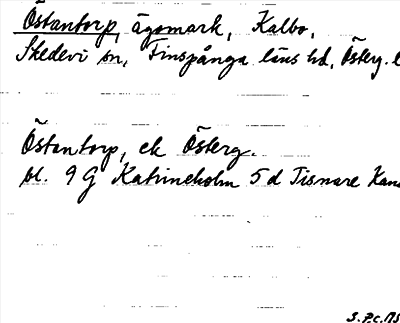 Östantorp, ägomark, Kalbo,
Skedevi sn, Finspånga läns hd, Österg. l
Östantorp, ek Österg.
bl. 9 G Katrineholm 5 d Tisnare Kana
S.P.C.